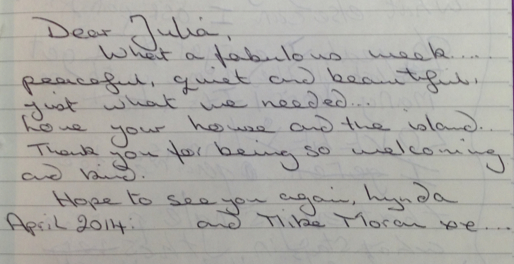 Dear Julia,
What a fabulous week....
peaceful, quiet and beautiful,
just what we needed...
Love your house and the island..
Thank you for being so welcoming
and kind.
Hope to see you again, Lynda
April 2014. and Mike Moran xx...